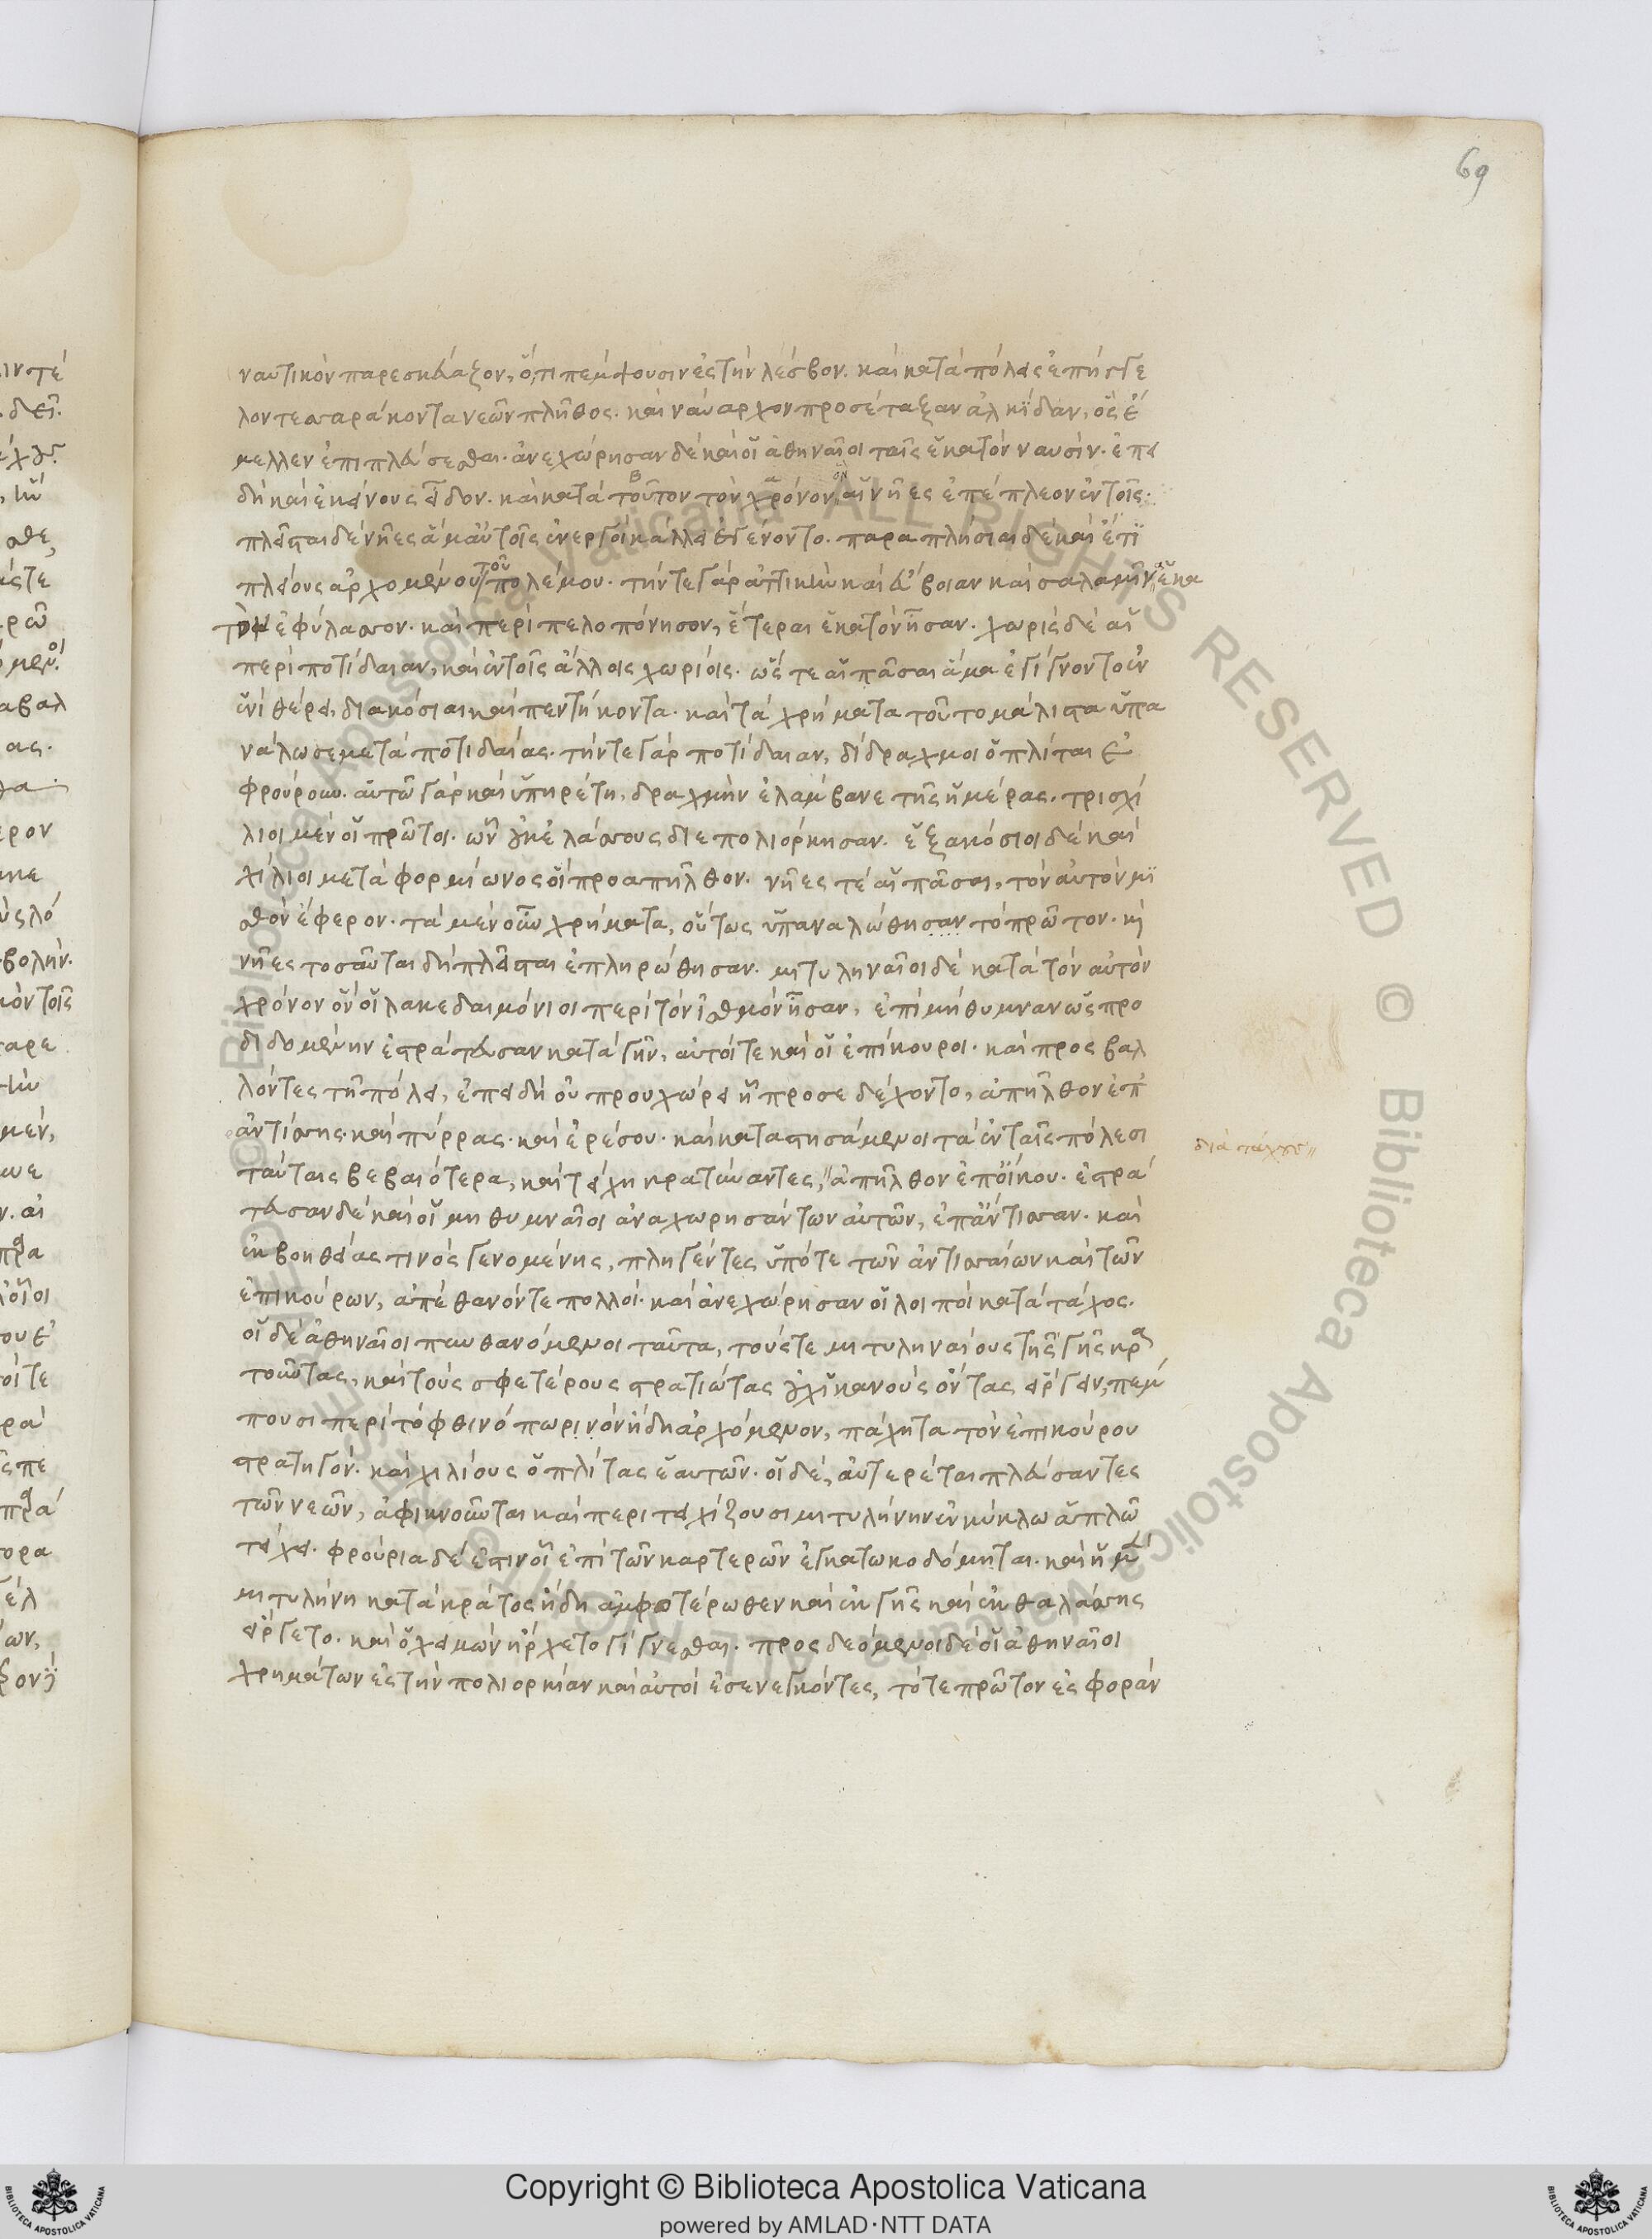 69
ναυτικὸν παρεσκεύαζον, ὅ,τι πέμψουσιν ἐς τὴν λέσβον. καὶ κατὰ πόλεις ἐπήγγε
λον τεσσαράκοντα νεῶν πλῆθος. καὶ ναύαρχον προσέταξαν ἀλκίδαν, ὃς ἔ
μελλεν ἐπιπλεύσεσθαι. ἀνεχώρησαν δὲ καὶ οἱ ἀθηναῖοι ταῖς ἑκατὸν ναυσίν. ἐπει
δὴ καὶ ἐκείνους εἶδον. καὶ κατὰ τοῦτον τὸν χρόνον ὃν αἱ νῆες ἐπέπλεον ἐν τοῖς.
πλεῖσται δὲ νῆες ἅμ' αὐτοῖς ἐνεργοὶ κάλλει ἐγένοντο. παραπλήσιαι δὲ καὶ ἔτι
πλείους ἀρχομένου τοῦ πολέμου. τήν τε γὰρ ἀττικὴν καὶ εὔβοιαν καὶ σαλαμῖνα ἑκα
τὸν ἐφύλασσον. καὶ περὶ πελοπόνησον, ἕτεραι ἑκατὸν ἦσαν. χωρὶς δὲ αἱ
περὶ ποτίδαιαν, καὶ ἐν τοῖς ἄλλοις χωρίοις. ὥστε αἱ πᾶσαι ἅμα ἐγίγνοντο ἐν
ἑνὶ θέρει, διακόσιαι καὶ πεντήκοντα. καὶ τὰ χρήματα τοῦτο μάλιστα ὑπα
νάλωσε μετὰ ποτιδαίας. τήν τε γὰρ ποτίδαιαν, δίδραχμοι ὁπλῖται ἐ
φρούρουν. αὑτῷ γὰρ καὶ ὑπηρέτῃ, δραχμὴν ἐλάμβανε τῆς ἡμέρας. τρισχί
λιοι μὲν οἱ πρῶτοι. ὧν οὐκ ἐλάσσους διεπολιόρκησαν. ἑξακόσιοι δὲ καὶ
χίλιοι μετὰ φορμίωνος οἳ προαπῆλθον. νῆές τε αἱ πᾶσαι, τὸν αὐτὸν μι
σθὸν ἔφερον. τὰ μὲν οὖν χρήματα, οὕτως ὑπαναλώθησαν τὸ πρῶτον. καὶ
νῆες τοσαῦται δὴ πλεῖσται ἐπληρώθησαν. μιτυληναῖοι δὲ κατὰ τὸν αὐτὸν
χρόνον ὃν οἱ λακεδαιμόνιοι περὶ τὸν ἰσθμὸν ἦσαν, ἐπὶ μήθυμναν ὡς προ
διδομένην ἐστράτευσαν κατὰ γῆν, αὐτοί τε καὶ οἱ ἐπίκουροι. καὶ προσβαλ
λόντες τῇ πόλει, ἐπειδὴ οὐ προυχώρει ᾗ προσεδέχοντο, ἀπῆλθον ἐπ'
ἀντίσσης. καὶ πύρρας. καὶ ἐρέσου. καὶ καταστησάμενοι τὰ ἐν ταῖς πόλεσι
διὰ τάχους
ταύταις βεβαιότερα, καὶ τείχη κρατύναντες, ἀπῆλθον ἐπ' οἴκου. ἐστρά
τευσαν δὲ καὶ οἱ μηθυμναῖοι ἀναχωρησάντων αὐτῶν, ἐπ' ἄντισσαν. καὶ
ἐκβοηθείας τινὸς γενομένης, πληγέντες ὑπό τε τῶν ἀντισσαίων καὶ τῶν
ἐπικούρων, ἀπέθανόν τε πολλοί. καὶ ἀνεχώρησαν οἱ λοιποὶ κατὰ τάχος.
οἱ δὲ ἀθηναῖοι πυνθανόμενοι ταῦτα, τούς τε μιτυληναίους τῆς γῆς κρα
τοῦντας, καὶ τοὺς σφετέρους στρατιώτας οὐχ ἱκανοὺς ὄντας εἴργειν, πέμ
πουσι περὶ τὸ φθινόπωρινὸν ἤδη ἀρχόμενον, πάχητα τὸν ἐπικούρου
στρατηγόν. καὶ χιλίους ὁπλίτας ἑαυτῶν. οἱ δὲ, αὐτερέται πλεύσαντες
τῶν νεῶν, ἀφικνοῦνται καὶ περιτειχίζουσι μιτυλήνην ἐν κύκλω ἁπλῶ
τείχει. φρούρια δὲ ἔστιν οἷ ἐπὶ τῶν καρτερῶν ἐγκατωκοδόμηται. καὶ ἡ μὲν
μιτυλήνη κατὰ κράτος ἤδη ἀμφοτέρωθεν καὶ ἐκ γῆς καὶ ἐκ θαλάσσης
εἴργετο. καὶ ὁ χειμὼν ἤρχετο γίγνεσθαι. προσδεόμενοι δὲ οἱ ἀθηναῖοι
χρημάτων ἐς τὴν πολιορκίαν καὶ αὐτοὶ ἐσενεγκόντες, τότε πρῶτον ἐς φορὰν
Copyright © Biblioteca Apostolica Vaticana
powered by AMLAD·NTT DATA